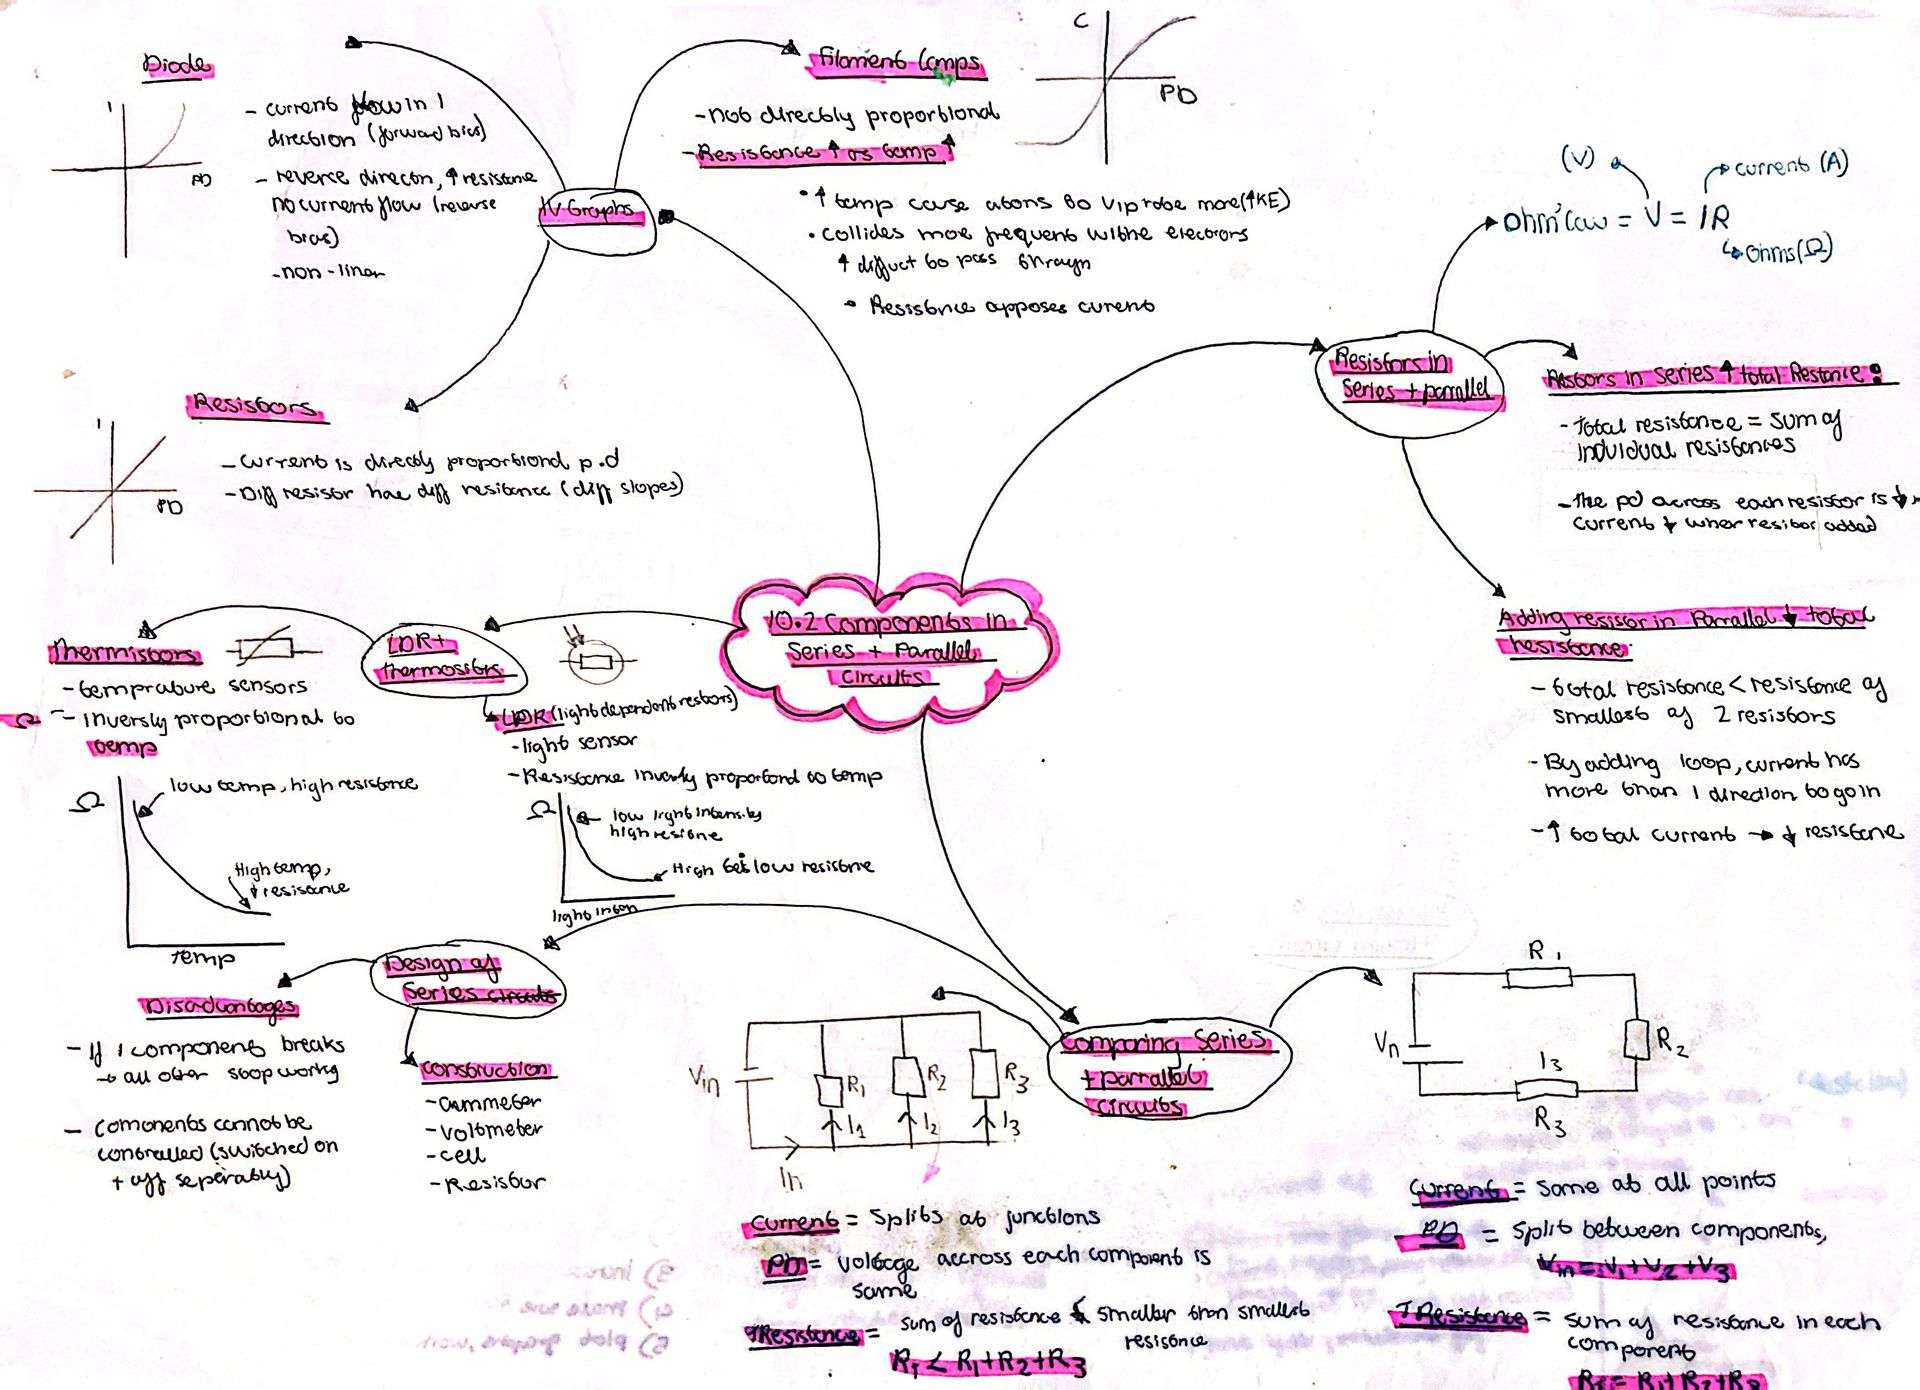 Diode
I
PD
- current flow in 1
direction (forward bias)
- reverse direcon, ↑ resistance
no current flow (reverse
bias)
- non-liner
Filament Lamps
- not directly proportional
- Resistance ↑ as temp ↑
• ↑ temp cause atoms to viprobe more (↑KE)
• collides more frequent withe elecrors
↑ diffuct to pass thraygn
• Resistnce apposes curent
C
PD
IV Graphs
(V)
current (A)
ohm' law = V = IR
ohms (Ω)
Resistors in
Series + parrallel
Resstors in series ↑ total Restance:
- total resistance = sum of
induvidual resistances
- The pd across each resistor is ↓
current ↓ when resitor added
Resistors
I
PD
- current is directly proportional p.d
- Diff resistor have diff resitance (diff slopes)
10.2 Components in
Series + Parallel
Circuits
Adding resistor in Parrallel ↓ total
resistance
- total resistance < resistance of
smallest of 2 resistors
- By adding loop, current has
more than 1 direction to go in
- ↑ total current → ↓ resistane
Thermistors
- temprature sensors
Ω - inversly proportional to
temp
Ω
low temp, high resistance
High temp,
↓ resistance
temp
LDR +
thermositors
LDR (light dependent restors)
- light sensor
- Resistance inversly proportional to temp
Ω
low light intensity
high resistne
High let: low resistne
light inten
Design of
Series circuits
Disadvantages
- If 1 component breaks
→ all other stop workng
- comonents cannot be
controlled (switched on
+ off seperatly)
construction
- ammeter
- voltmeter
- cell
- Resistor
Comparing Series
+ parrallel
circuits
Vin
R1
R2
R3
I1
I2
I3
In
Current = splits at junctions
PD = voltage accross each component is
same
TResistance = sum of resistance < smaller than smallest
resistnce
RT < R1 + R2 + R3
R1
Vn
R2
I3
R3
Current = same at all points
PD = split between components,
Vin = V1 + V2 + V3
TResistance = sum of resistance in each
component
RT = R1 + R2 + R3